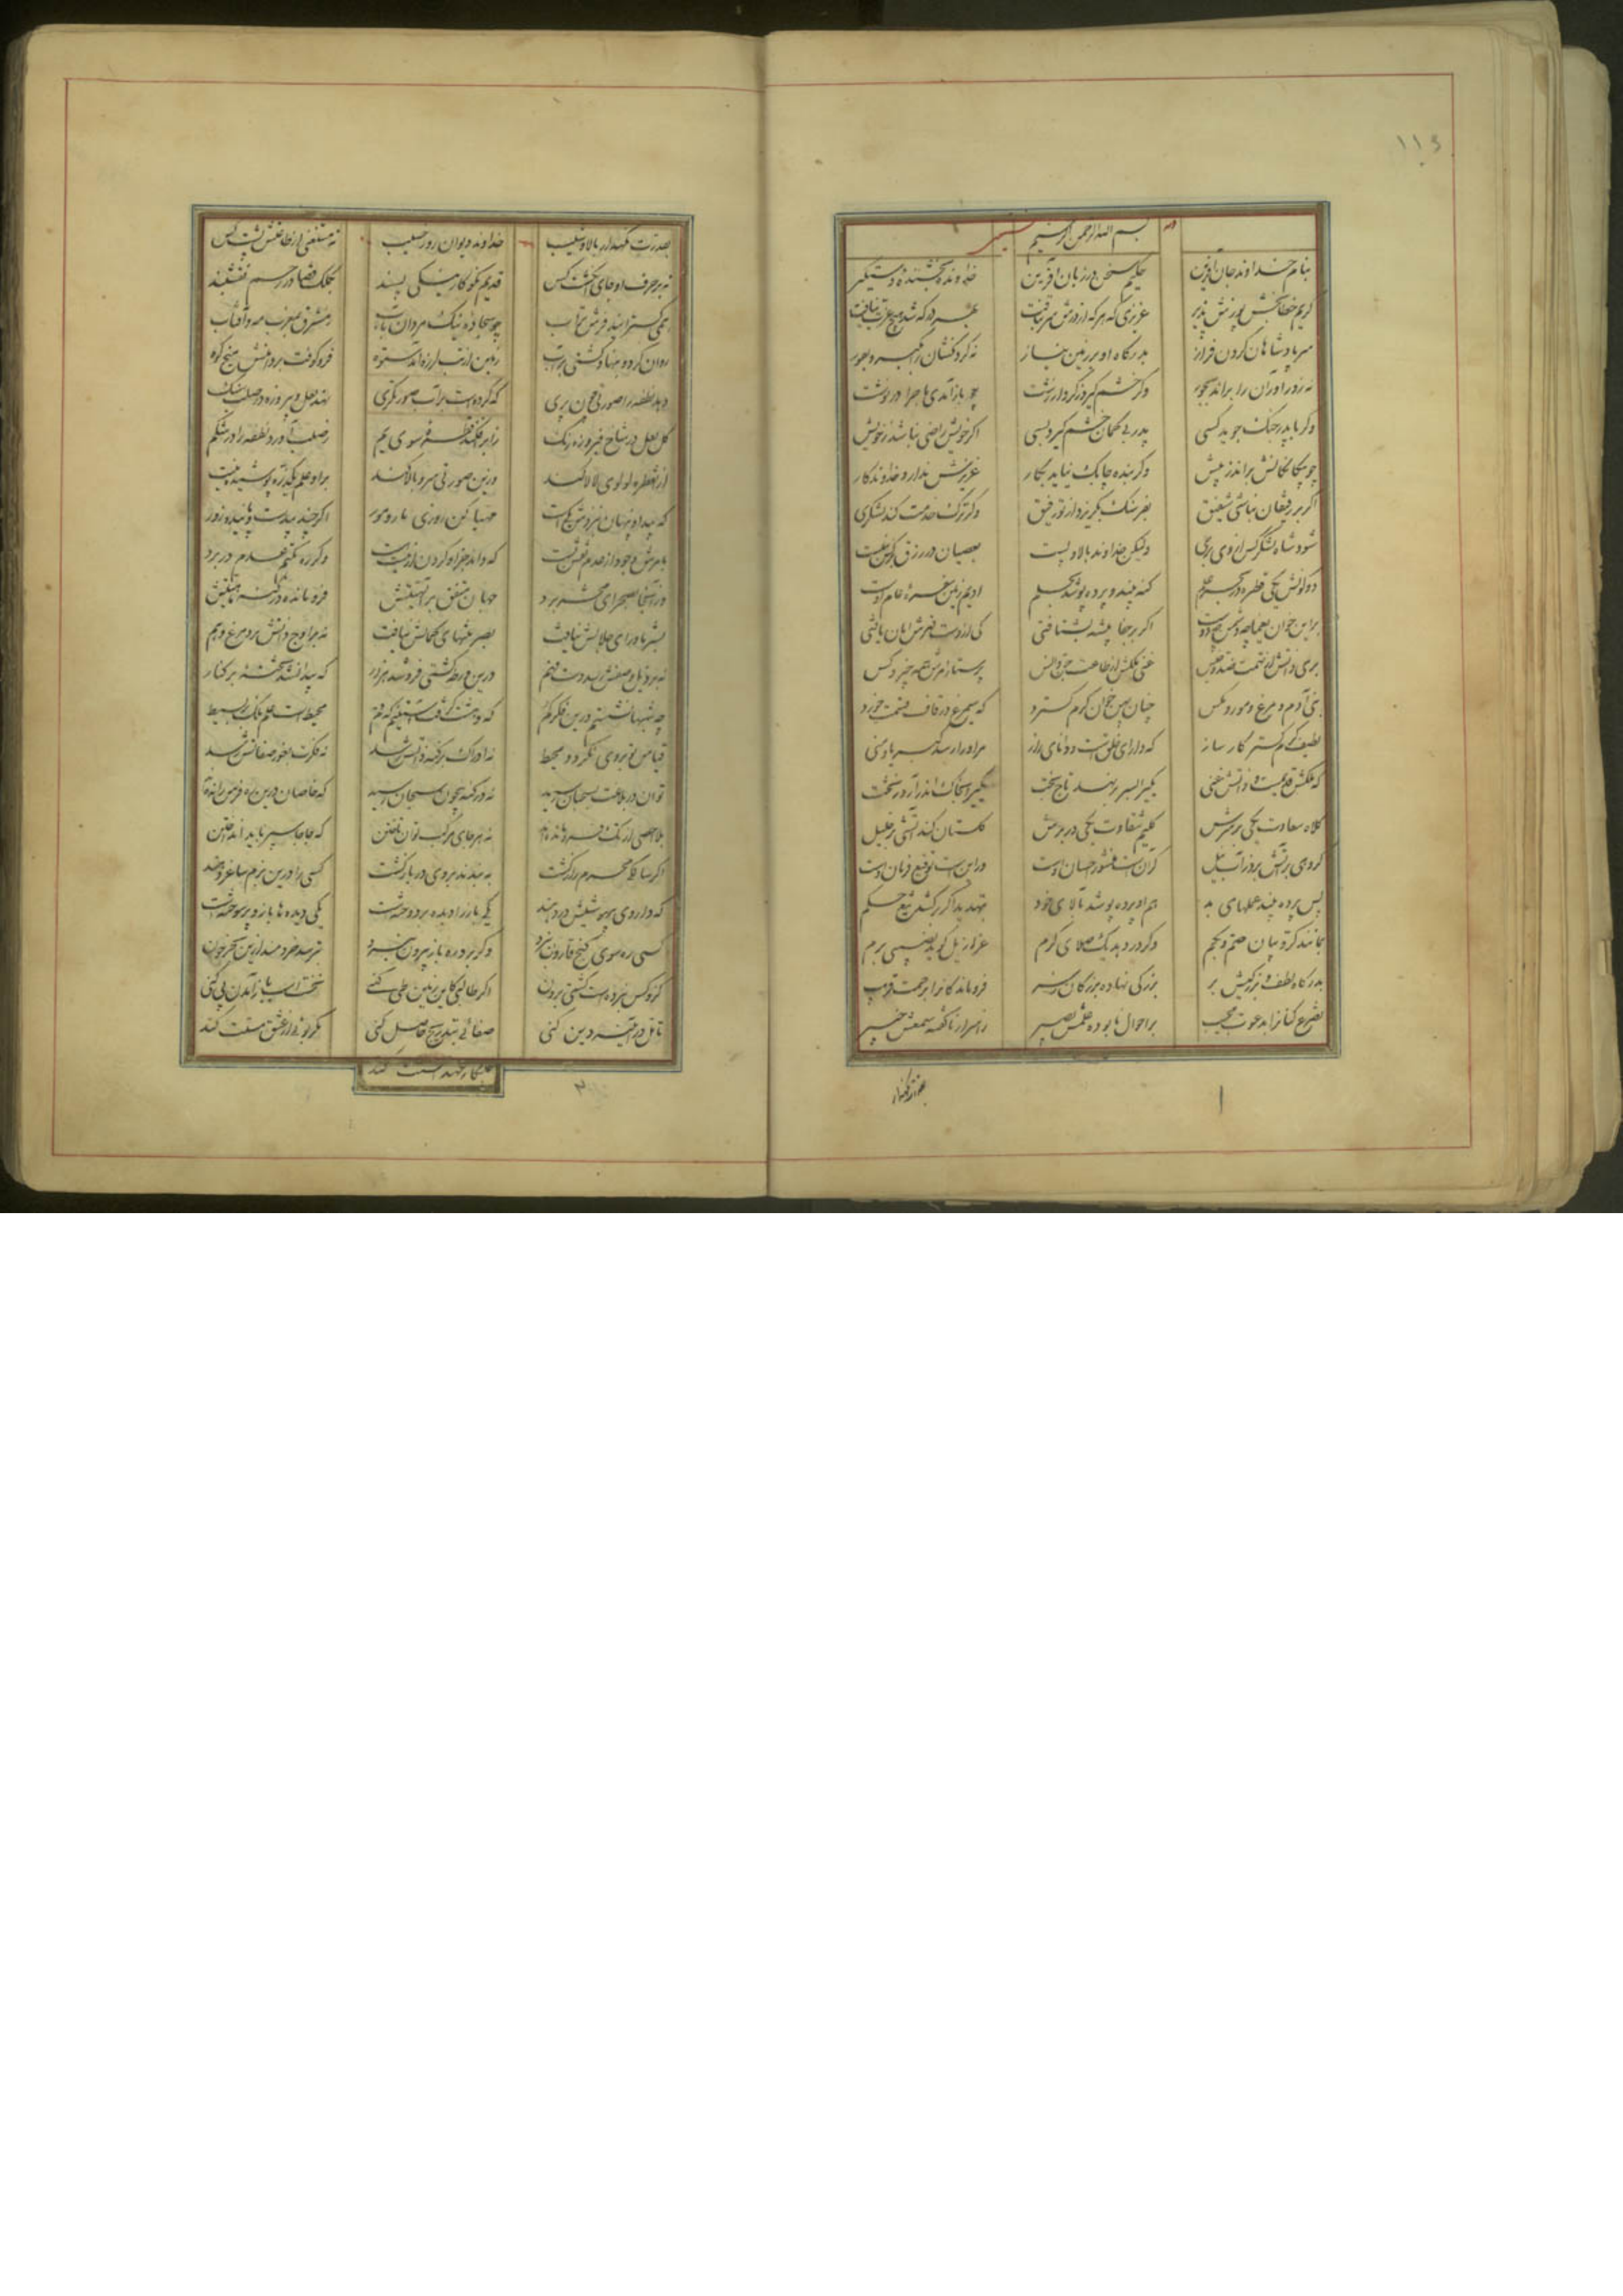 ۱۱۶
بسم الله الرحمن الرحیم
بنام خداوند جان آفرین حکیم سخن در زبان آفرین خداوند بخشنده دستگیر
کریم خطابخش پوزش پذیر عزیزی که هر که از درش سر بتافت بهر در که شد هیچ عزت نیافت
سر پادشاهان گردن فراز بدرگاه او بر زمین نیاز نه گردنکشان را بگیرد بفور
نه زورآوران را براند بجور وگر خشم گیرد ز کردار زشت چو باز آمدی ماجرا در نوشت
وگر با پدر جنگ جوید کسی پدر بی گمان خشم گیرد بسی اگر خویش راضی نباشد ز خویش
چو بیگانگانش براند ز پیش وگر بنده چابک نیاید بکار عزیزش ندارد خداوندگار
اگر بر رفیقان نباشی شفیق بفرسنگ بگریزد از تو رفیق وگر ترک خدمت کند لشکری
شود شاه لشکرکش از وی بری ولیکن خداوند بالا و پست بعصیان در رزق بر کس نبست
دو کونش یکی قطره در بحر علم گنه بیند و پرده پوشد بحلم ادیم زمین سفره عام اوست
برین خوان یغما چه دشمن چه دوست اگر بر جفا پیشه بشتافتی کی از دست قهرش امان یافتی
بری ذاتش از تهمت ضد و جنس غنی ملکش از طاعت جن و انس پرستار امرش همه چیز و کس
بنی آدم و مرغ و مور و مگس چنان پهن خوان کرم گسترد که سیمرغ در قاف قسمت خورد
لطیف کرم گستر کارساز که دارای خلقست و دانای راز مر او را رسد کبریا و منی
که ملکش قدیمست و ذاتش غنی یکی را بسر بر نهد تاج بخت یکی را بخاک اندر آرد ز تخت
کلاه سعادت یکی بر سرش گلیم شقاوت یکی در برش گلستان کند آتشی بر خلیل
گروهی بر آتش برد ز آب نیل گر آن است منشور احسان اوست ور این است توقیع فرمان اوست
پس پرده بیند عملهای بد هم او پرده پوشد بآلای خود بتهدید اگر بر کشد تیغ حکم
بمانند کروبیان صم و بکم وگر در دهد یک صلای کرم عزازیل گوید نصیبی برم
بدرگاه لطف و بزرگیش بر بزرگی نهاده بزرگان ز سر فروماندگان را برحمت قریب
تضرع کنان را بدعوت مجیب بر احوال نابوده علمش بصیر باسرار ناگفته سمعش خبیر
۱
بقدرت نگهدار بالا و شیب خداوند دیوان روز حسیب نه مستغنی از طاعتش پشت کس
نه بر حرف او جای انگشت کس قدیم نکوکار نیکی پسند بکلک قضا در رحم نقشبند
ز مشرق بمغرب مه و آفتاب
روان کرد و بنهاد گیتی بر آب زمین از تب لرزه آمد ستوه فرو کوفت بر دامنش میخ کوه
دهد نطفه را صورتی چون پری که کرده است بر آب صورتگری نهد لعل و پیروزه در صلب سنگ
گل لعل در شاخ فیروزه رنگ ز ابر افکند قطره سوی یم ز صلب آورد نطفه را در شکم
از آن قطره لولوی لالا کند وزین صورتی سرو بالا کند برو علم یک ذره پوشیده نیست
که پیدا و پنهان بنزدش یکیست مهیا کن روزی مار و مور اگر چند بی دست و پایند و زور
بامرش وجود از عدم نقش بست که داند جز او کردن از نیست هست وگر ره بکتم عدم در برد
وز آنجا بصحرای محشر برد جهان متفق بر الهیتش فرو مانده در کنه ماهیتش
بشر ماورای جلالش نیافت بصر منتهای کمالش نیافت نه بر اوج ذاتش پرد مرغ وهم
نه در ذیل وصفش رسد دست فهم درین ورطه کشتی فرو شد هزار که پیدا نشد تخته بر کنار
چه شبها نشستم درین فکر گم که دهشت گرفت آستینم که قم محیط است علم ملک بر بسیط
قیاس تو بر وی نگردد محیط نه ادراک بر کنه ذاتش رسد نه فکرت بغور صفاتش رسد
توان در بلاغت بسحبان رسید نه در کنه بیچون سبحان رسید که خاصان درین ره فرس رانده اند
بلا احصی از تک فرو مانده اند نه هر جای مرکب توان تاختن که جاجا سپر باید انداختن
اگر سالکی محرم راز گشت به بندند بر وی در بازگشت کسی را درین بزم ساغر دهند
که داروی بیهوشیش در دهند یکی باز را دیده بر دوخته است یکی دیده ها باز و پر سوخته است
کسی ره سوی گنج قارون نبرد وگر برد ره باز بیرون نبرد بترسد خردمند ازین بحر خون
کزو کس نبرده است کشتی برون اگر طالبی کاین زمین طی کنی نخست اسب باز آمدن پی کنی
تامل در آیینه دل کنی صفائی بتدریج حاصل کنی مگر بوئی از عشق مستت کند
طلبکار عهد الست کند
۲